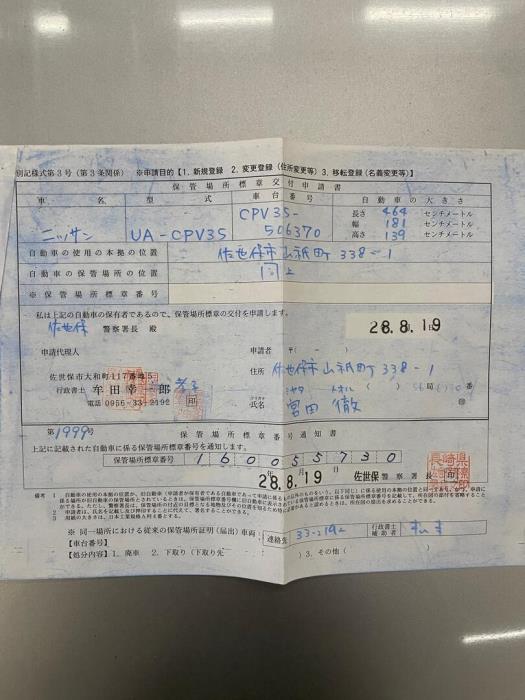 別記様式第3号（第3条関係） ※申請目的【1. 新規登録 2. 変更登録（住所変更等）3. 移転登録（名義変更等）】
保管場所標章交付申請書
車名 型式 車台番号 自動車の大きさ
ニッサン UA-CPV35 CPV35-506370
長さ 464 センチメートル
幅 181 センチメートル
高さ 139 センチメートル
自動車の使用の本拠の位置 佐世保市山祇町338-1
自動車の保管場所の位置 同上
※保管場所標章番号
私は上記の自動車の保有者であるので、保管場所標章の交付を申請します。
佐世保 警察署長 殿
28.8.19
申請代理人 申請者 〒( - )
佐世保市大和町117番地5 住所 佐世保市山祇町338-1
行政書士 牟田幸一郎 印
電話 0956-33-2192
( ) 局 番
フリガナ ミヤタ トオル
氏名 宮田 徹 印
第1999号 保管場所標章番号通知書
上記に記載された自動車に係る保管場所標章番号を通知します。
保管場所標章番号 160055730
年 月 日
28.8.19 佐世保 警察署長 印
備考
※ 同一場所における従来の保管場所証明（届出）車両
連絡先 33-2192 行政書士補助者
【車台番号】
【処分内容】1. 廃車 2. 下取り（下取り先 ）3. その他（